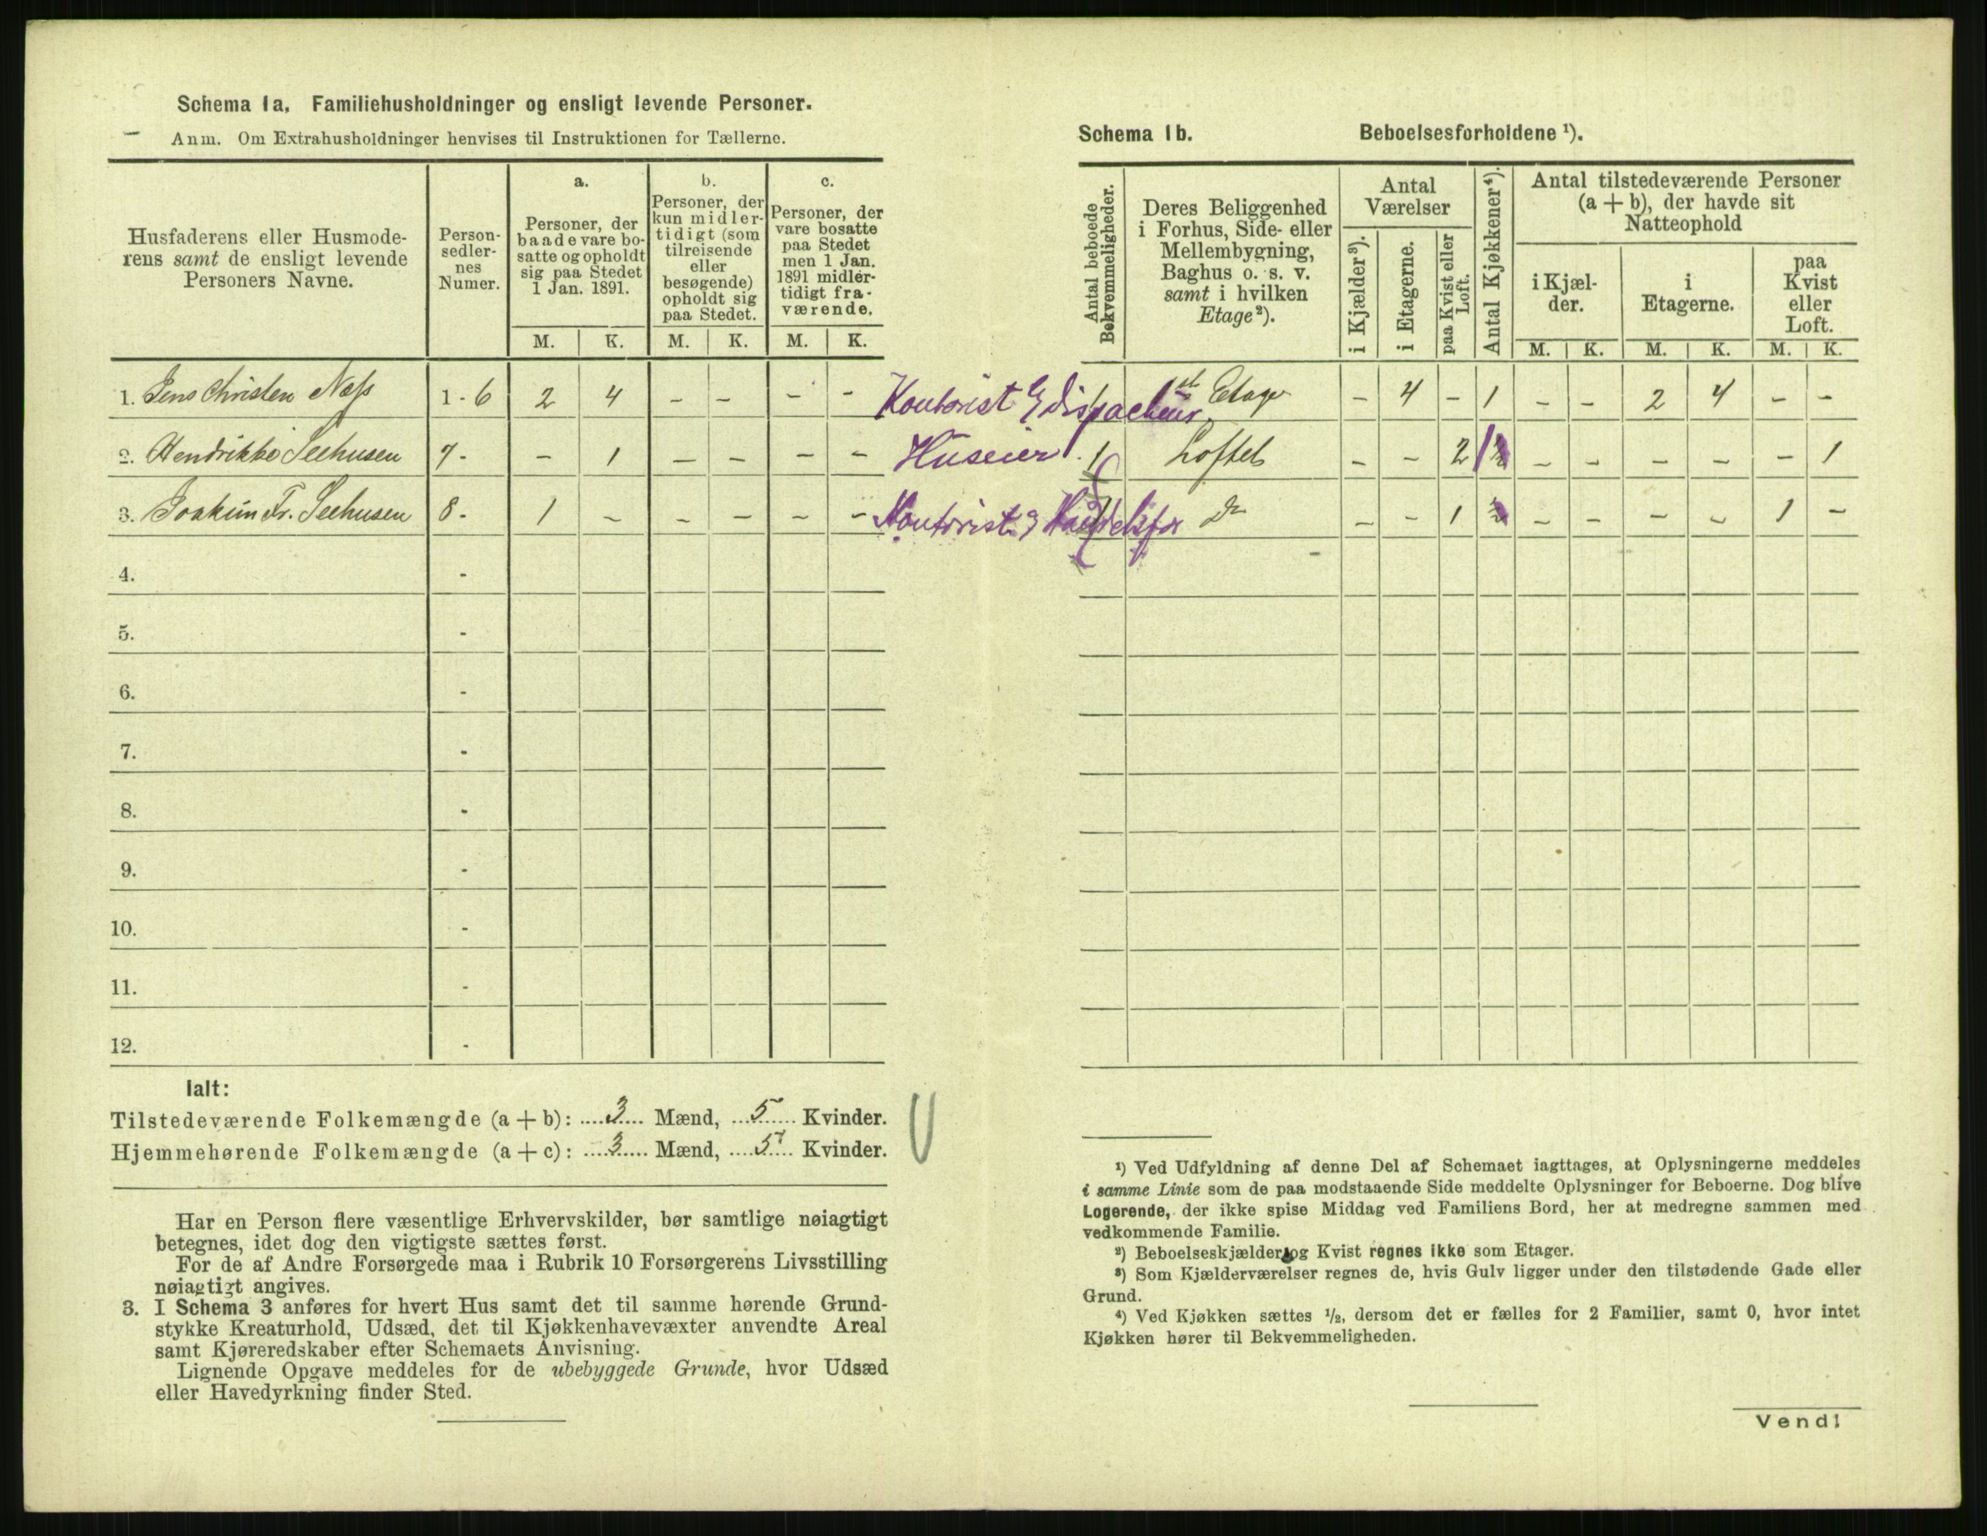 Schema 1a. Familiehusholdninger og ensligt levende Personer.
Anm. Om Extrahusholdninger henvises til Instruktionen for Tællerne.
Husfaderens eller Husmode-
rens samt de ensligt levende
Personers Navne.
Person-
sedler-
nes
Numer.
a.
Personer, der
baade vare bo-
satte og opholdt
sig paa Stedet
1 Jan. 1891.
b.
Personer, der
kun midler-
tidigt (som
tilreisende
eller
besøgende)
opholdt sig
paa Stedet.
c.
Personer, der
vare bosatte
paa Stedet
men 1 Jan.
1891 midler-
tidigt fra-
værende.
M. K. M. K. M. K.
1. Jens Christen Næss 1-6 2 4 - - - - Kontorist & dispacheur
2. Hendrikke Seehusen 7- - 1 - - - - Huseier
3. Joakim Fr. Seehusen 8- 1 - - - - - Kontorist &
4. -
5. -
6. -
7. -
8. -
9. -
10. -
11. -
12. -
Ialt:
Tilstedeværende Folkemængde (a + b): 3 Mænd, 5 Kvinder.
Hjemmehørende Folkemængde (a + c): 3 Mænd, 5 Kvinder.
Har en Person flere væsentlige Erhvervskilder, bør samtlige nøiagtigt
betegnes, idet dog den vigtigste sættes først.
For de af Andre Forsørgede maa i Rubrik 10 Forsørgerens Livsstilling
nøiagtigt angives.
3. I Schema 3 anføres for hvert Hus samt det til samme hørende Grund-
stykke Kreaturhold, Udsæd, det til Kjøkkenhavevæxter anvendte Areal
samt Kjøreredskaber efter Schemaets Anvisning.
Lignende Opgave meddeles for de ubebyggede Grunde, hvor Udsæd
eller Havedyrkning finder Sted.
Schema 1b. Beboelsesforholdene ¹).
Antal beboede
Bekvemmeligheder.
Deres Beliggenhed
i Forhus, Side- eller
Mellembygning,
Baghus o. s. v.
samt i hvilken
Etage²).
Antal
Værelser
i Kjælder³).
i Etagerne.
paa Kvist eller
Loft.
Antal Kjøkkener⁴).
Antal tilstedeværende Personer
(a + b), der havde sit
Natteophold
i Kjæl-
der.
i
Etagerne.
paa
Kvist
eller
Loft.
M. K. M. K. M. K.
1 1st Etage - 4 - 1 - - 2 4 - -
1 Loftet - - 2 1 - - - - - 1
Do - - 1 - - - - 1 -
¹) Ved Udfyldning af denne Del af Schemaet iagttages, at Oplysningerne meddeles
i samme Linie som de paa modstaaende Side meddelte Oplysninger for Beboerne. Dog blive
Logerende, der ikke spise Middag ved Familiens Bord, her at medregne sammen med
vedkommende Familie.
²) Beboelseskjælder og Kvist regnes ikke som Etager.
³) Som Kjælderværelser regnes de, hvis Gulv ligger under den tilstødende Gade eller
Grund.
⁴) Ved Kjøkken sættes ½, dersom det er fælles for 2 Familier, samt 0, hvor intet
Kjøkken hører til Bekvemmeligheden.
Vend!